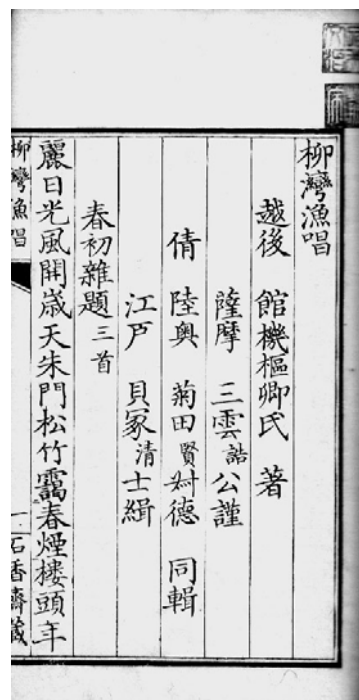 柳灣漁唱
越後 館機樞卿氏 著
薩摩 三雲誥公謹
倩 陸奥 菊田賢 德 同輯
江戸 貝冢清士緝
春初雜題三首
麗日光風開歳天朱門松竹靄春煙樓頭年
柳灣漁唱 一 石香齋藏